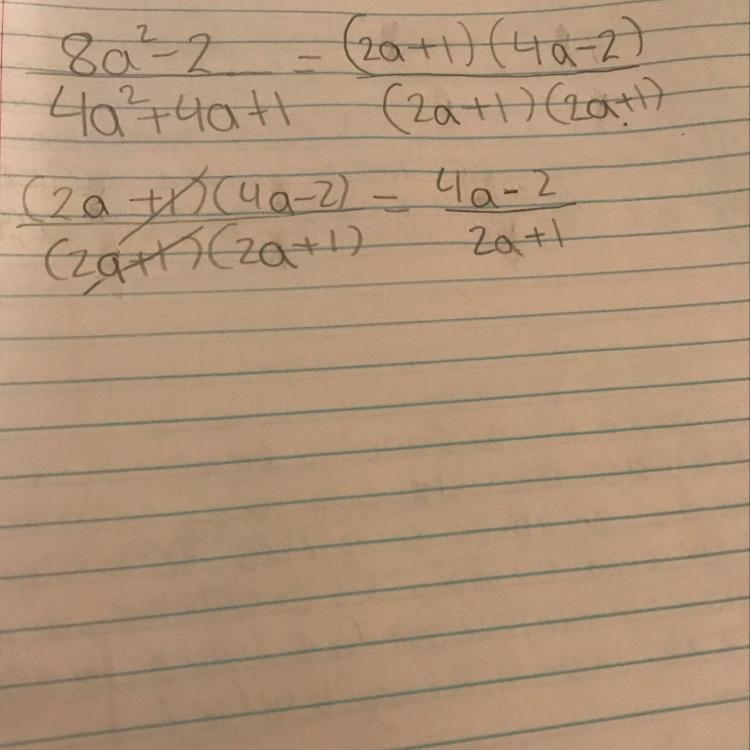 8a²-2 / 4a²+4a+1 = (2a+1)(4a-2) / (2a+1)(2a+1)
(2a+1)(4a-2) / (2a+1)(2a+1) = 4a-2 / 2a+1